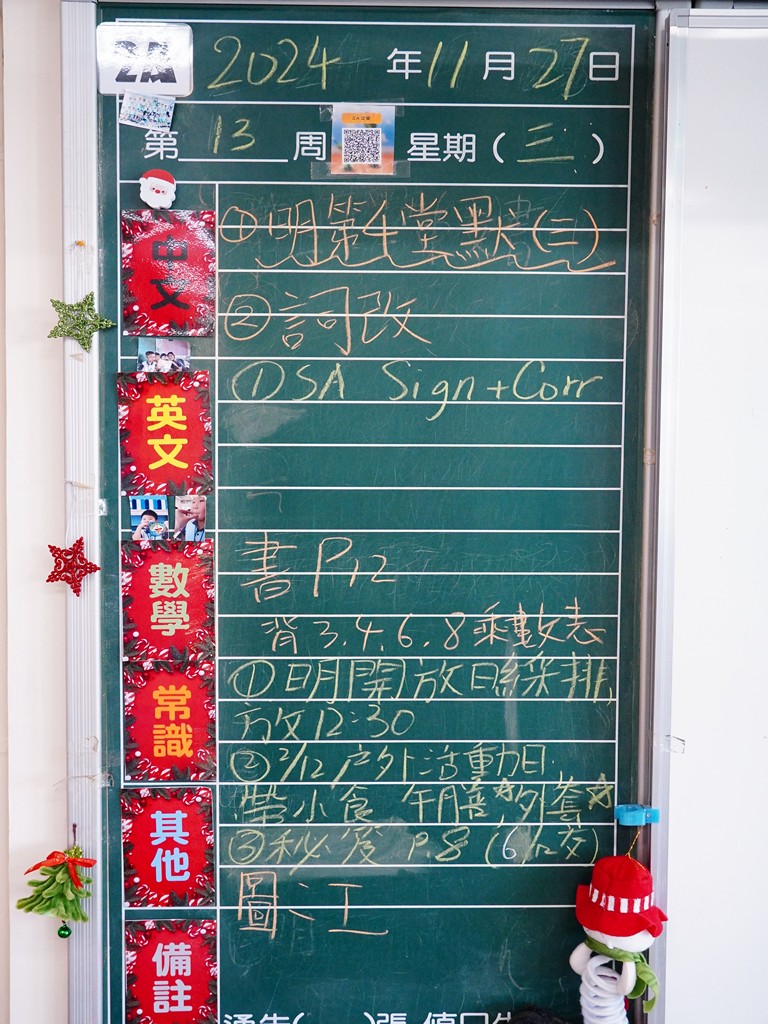 2A
2024 年 11 月 27 日
第 13 周 星期（三）
中文
①明第4堂默(三)
②詞改
英文
① SA Sign + Corr
數學
書 P12
背 3.4.6.8 乘數表
常識
①明開放日綵排,
放12:30
②2/12 戶外活動日
帶小食 午膳☆外套☆
其他
③秘笈 P.8 (6/12交)
圖、工
備註
通告( )張